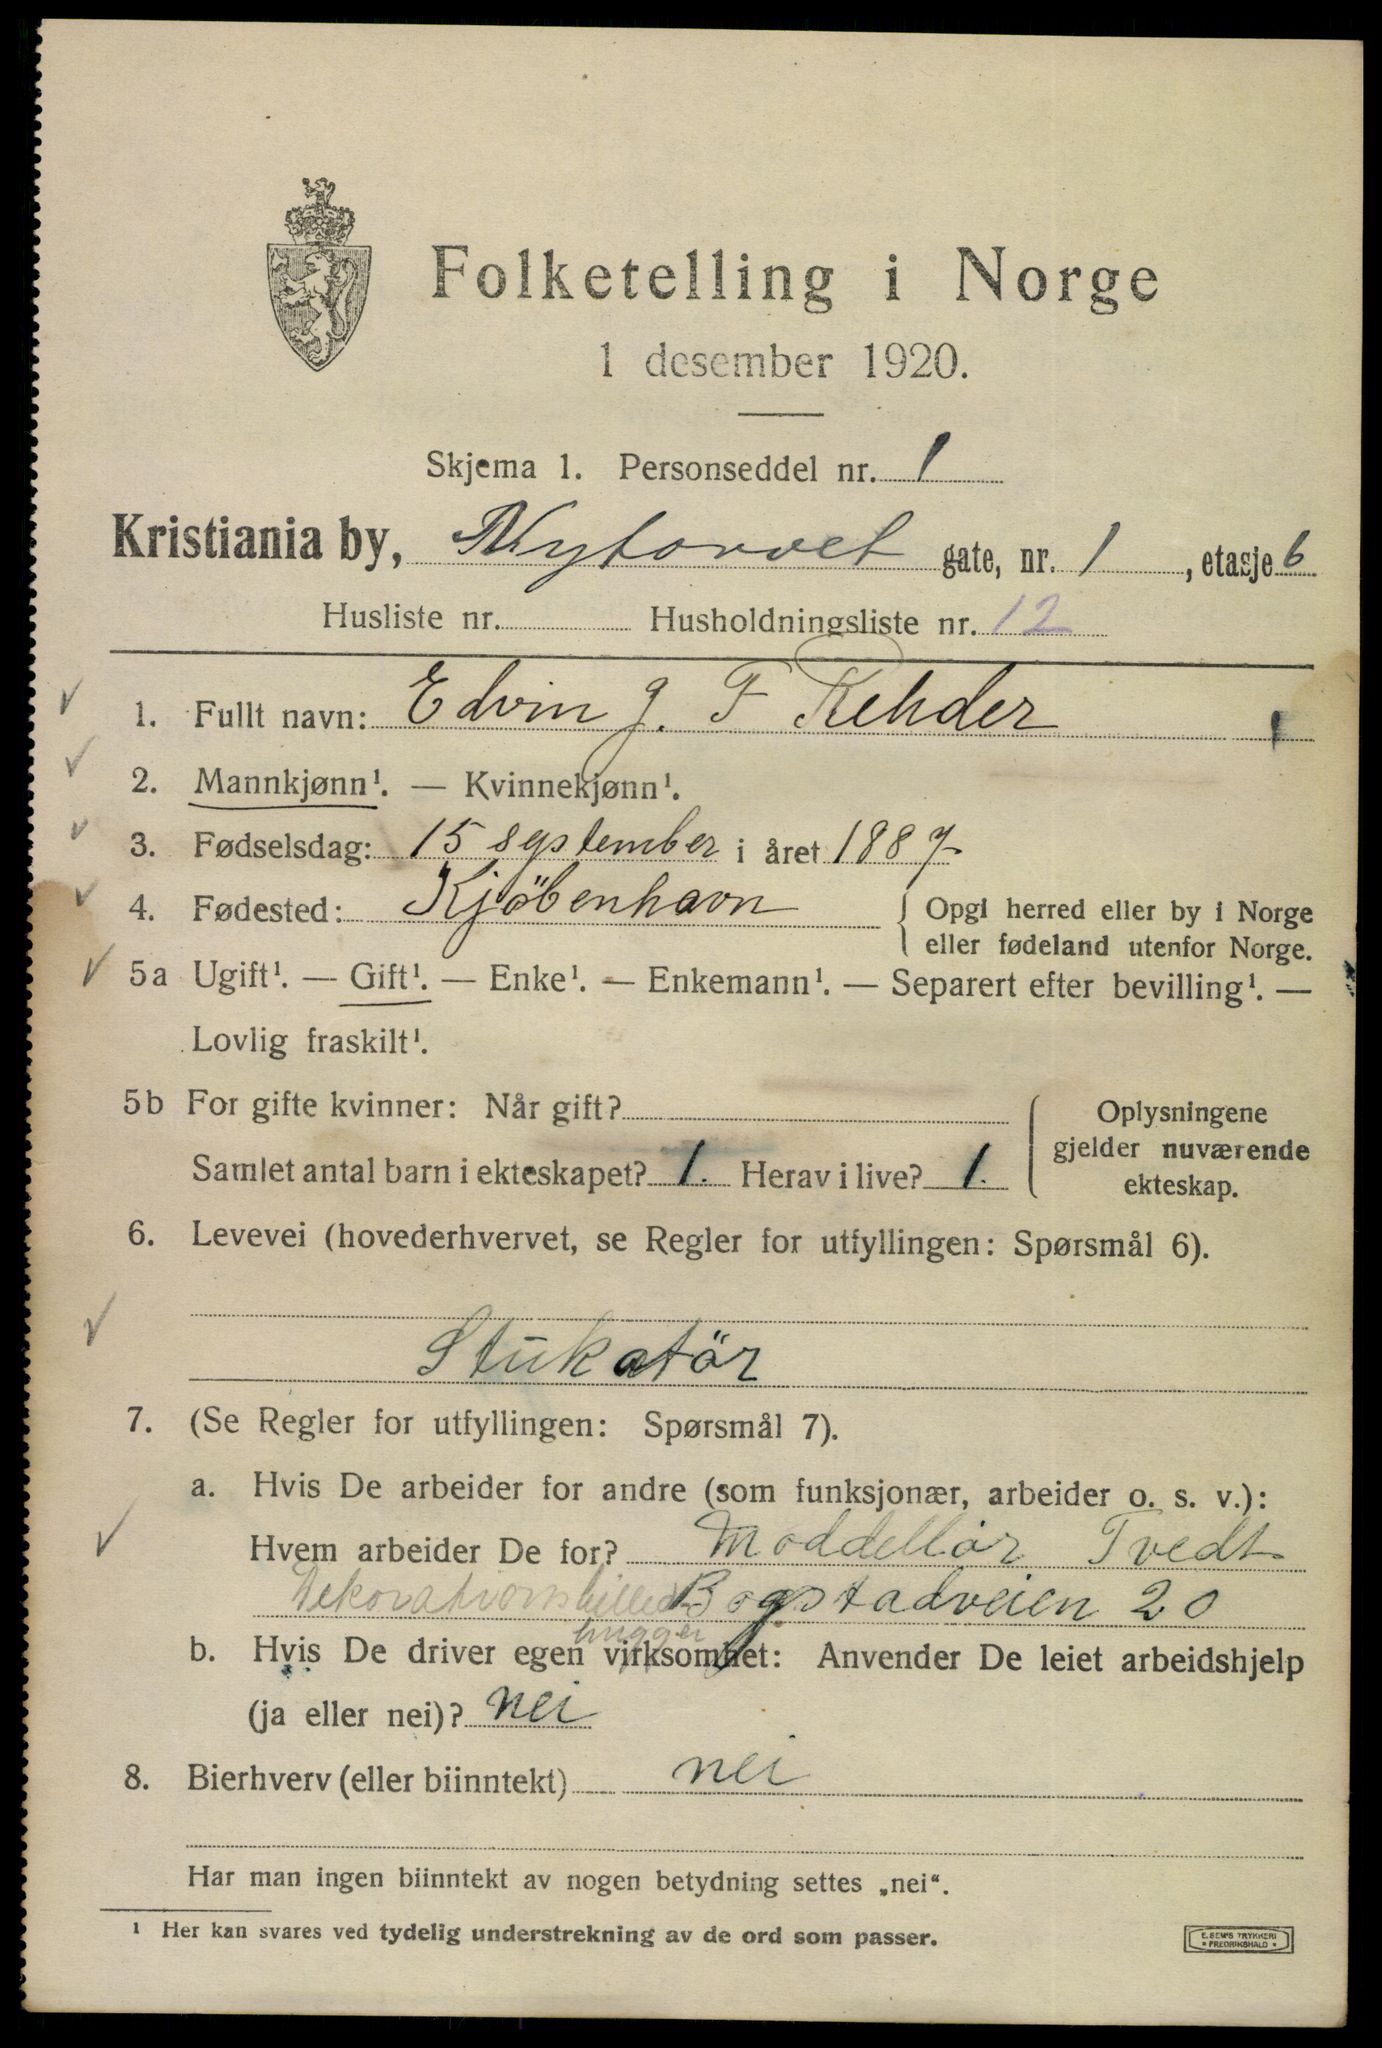 Folketelling i Norge
1 desember 1920.
Skjema 1. Personseddel nr. 1
Kristiania by, Nytorvet gate, nr. 1, etasje 6
Husliste nr. Husholdningsliste nr. 12
1. Fullt navn: Edvin J. F Rehder
2. Mannkjønn¹. — Kvinnekjønn¹.
3. Fødselsdag: 15 september i året 1887
4. Fødested: Kjöbenhavn { Opgi herred eller by i Norge
eller fødeland utenfor Norge.
5a Ugift¹. — Gift¹. — Enke¹. — Enkemann¹. — Separert efter bevilling¹. —
Lovlig fraskilt¹.
5b For gifte kvinner: Når gift? Oplysningene
gjelder nuværende
Samlet antal barn i ekteskapet? 1. Herav i live? 1.
ekteskap.
6. Levevei (hovederhvervet, se Regler for utfyllingen: Spørsmål 6).
Stukatör
7. (Se Regler for utfyllingen: Spørsmål 7).
a. Hvis De arbeider for andre (som funksjonær, arbeider o. s. v.):
Hvem arbeider De for? Moddellör Tvedt
Dekorationsbilled Bogstadveien 20
hugger
b. Hvis De driver egen virksomhet: Anvender De leiet arbeidshjelp
(ja eller nei)? nei
8. Bierhverv (eller biinntekt) nei
Har man ingen biinntekt av nogen betydning settes „nei“.
¹ Her kan svares ved tydelig understrekning av de ord som passer.
E. SEM'S TRYKKERI
• FREDRIKSHALD •